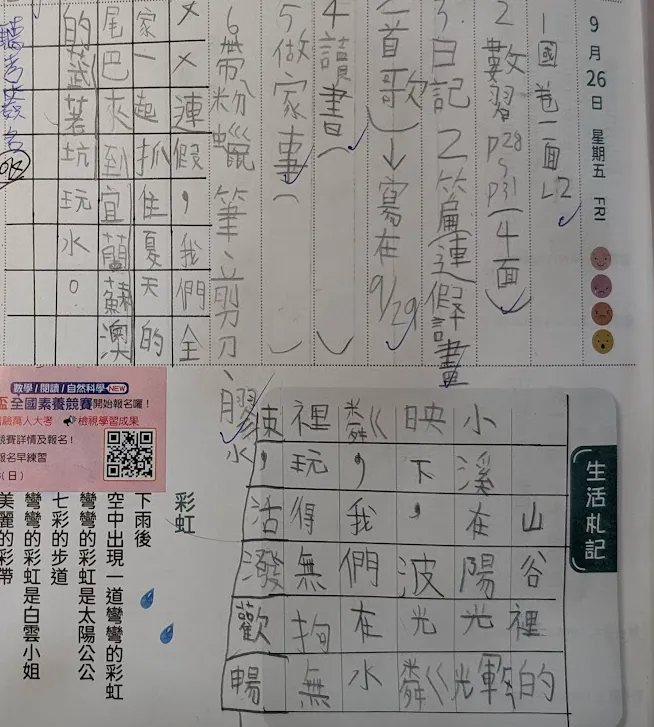 9月26日 星期五 FRI
1國卷一面L2
2 數習P28~P31(4面)
3.日記2篇(連假計畫
一首歌)→寫在9/29
4讀書(
5做家事(
6帶粉蠟筆、剪刀、膠水
××連假，我們全
家一起抓住夏天的
尾巴來到宜蘭蘇澳
的武荖坑玩水。
生活札記
山谷裡的
小溪在陽光輝
映下，波光粼
粼，我們在水
裡玩得無拘無
束，活潑歡暢
數學/閱讀/自然科學 NEW
盃全國素養競賽開始報名囉！
萬人大考 檢視學習成果
競賽詳情及報名！
報名早練習
(日)
彩虹
下雨後
空中出現一道彎彎的彩虹
彎彎的彩虹是太陽公公
七彩的步道
彎彎的彩虹是白雲小姐
美麗的彩帶